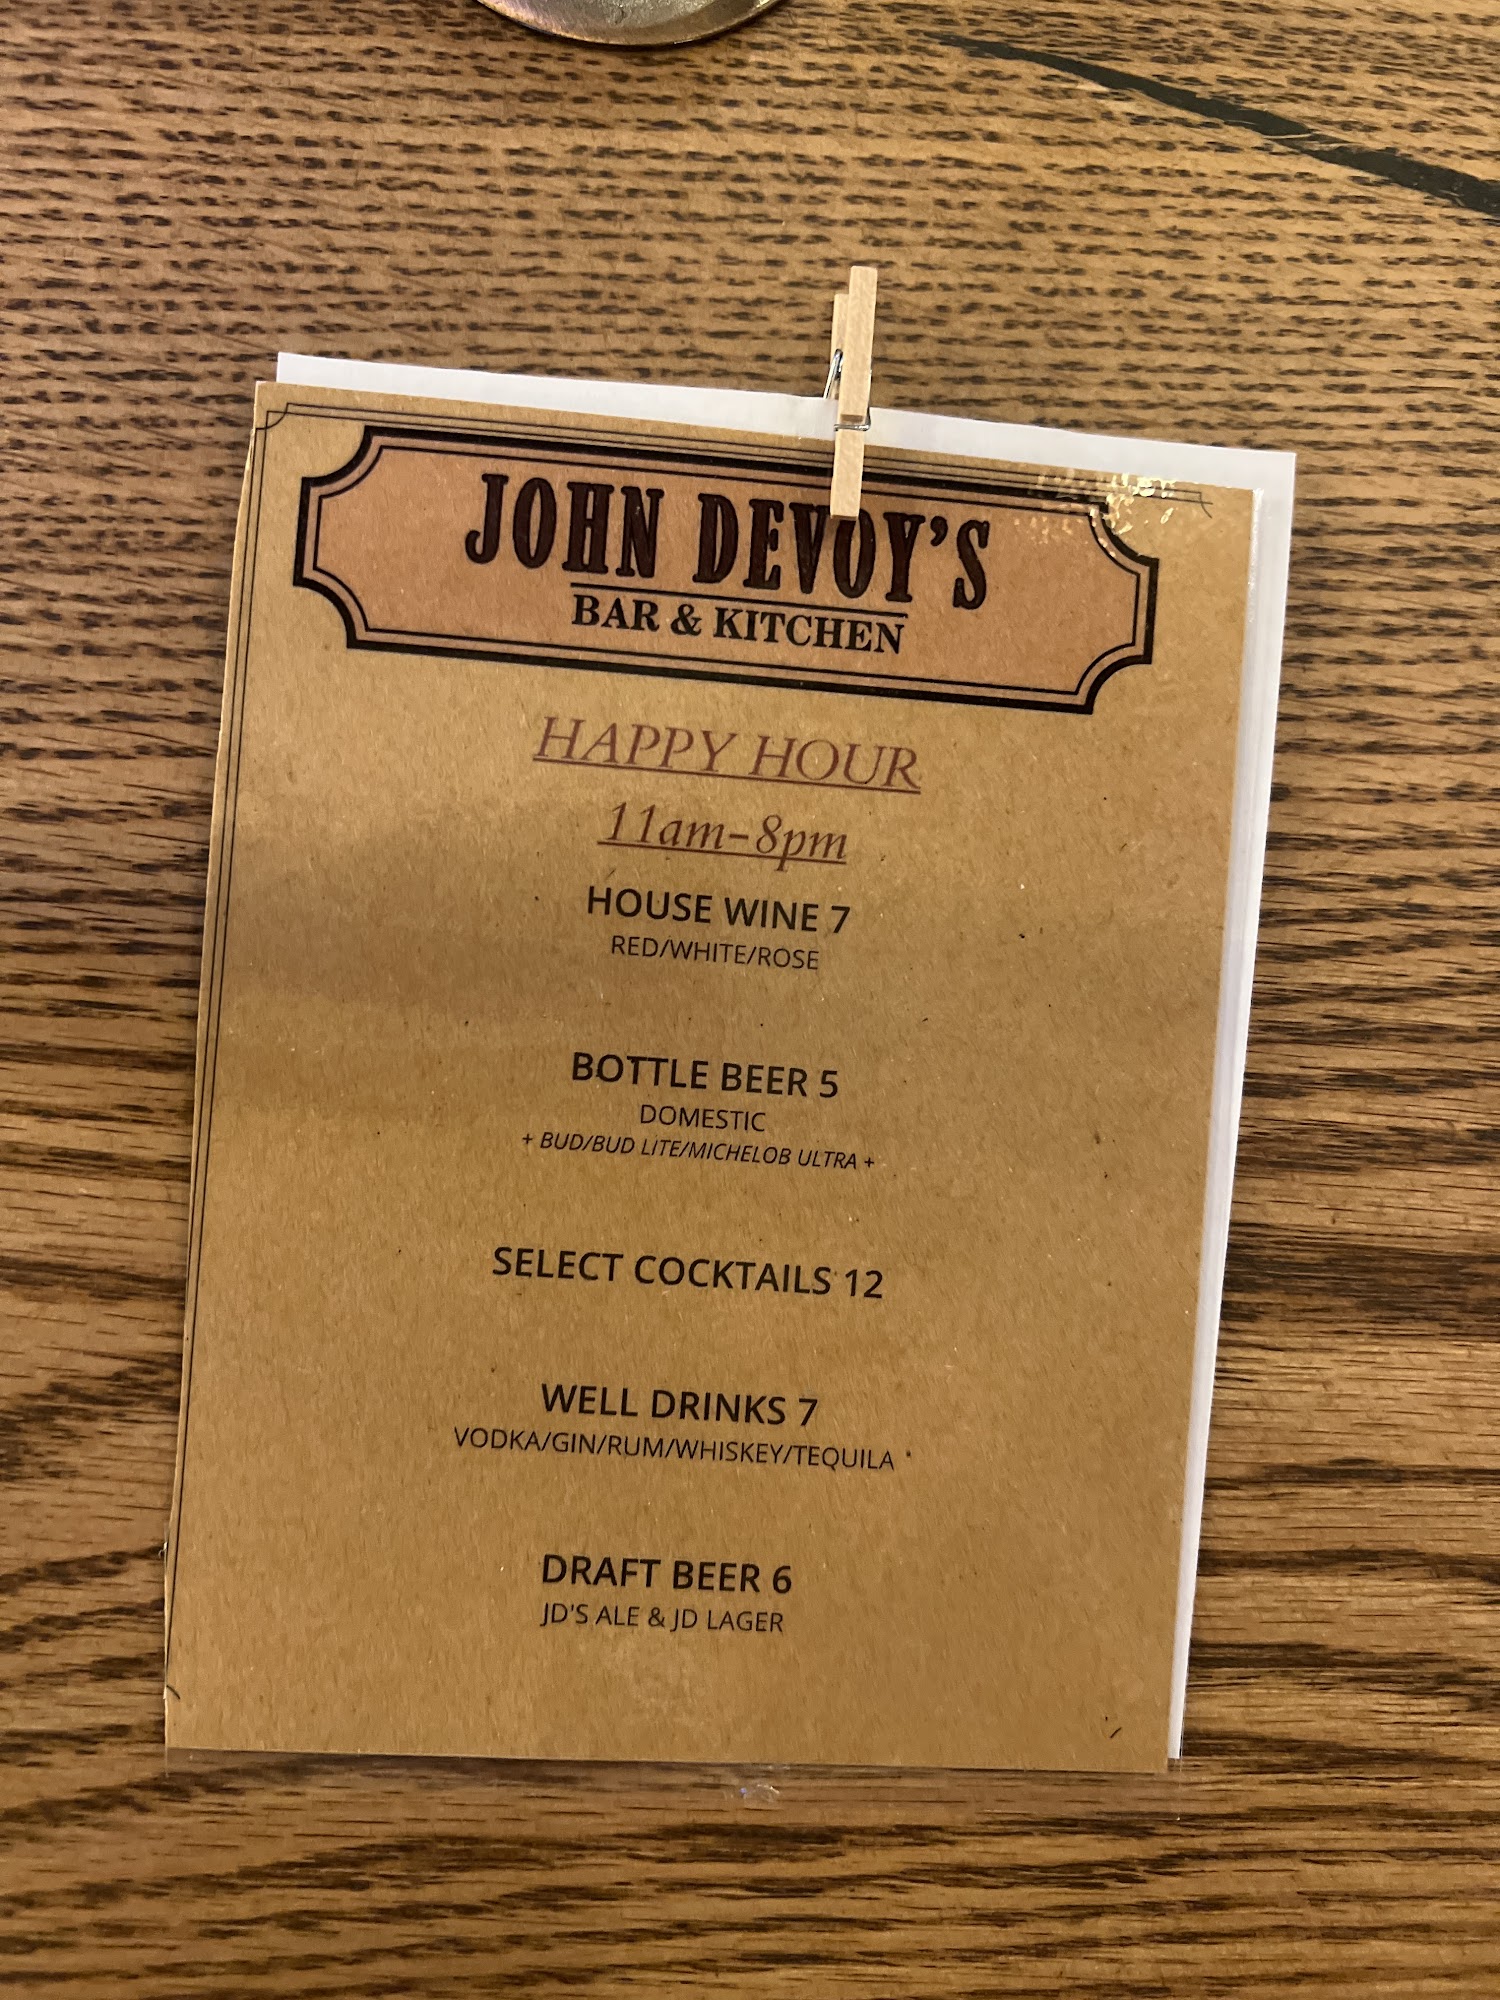 JOHN DEVOY'S
BAR & KITCHEN
HAPPY HOUR
11am-8pm
HOUSE WINE 7
RED/WHITE/ROSE
BOTTLE BEER 5
DOMESTIC
+ BUD/BUD LITE/MICHELOB ULTRA +
SELECT COCKTAILS 12
WELL DRINKS 7
VODKA/GIN/RUM/WHISKEY/TEQUILA
DRAFT BEER 6
JD'S ALE & JD LAGER